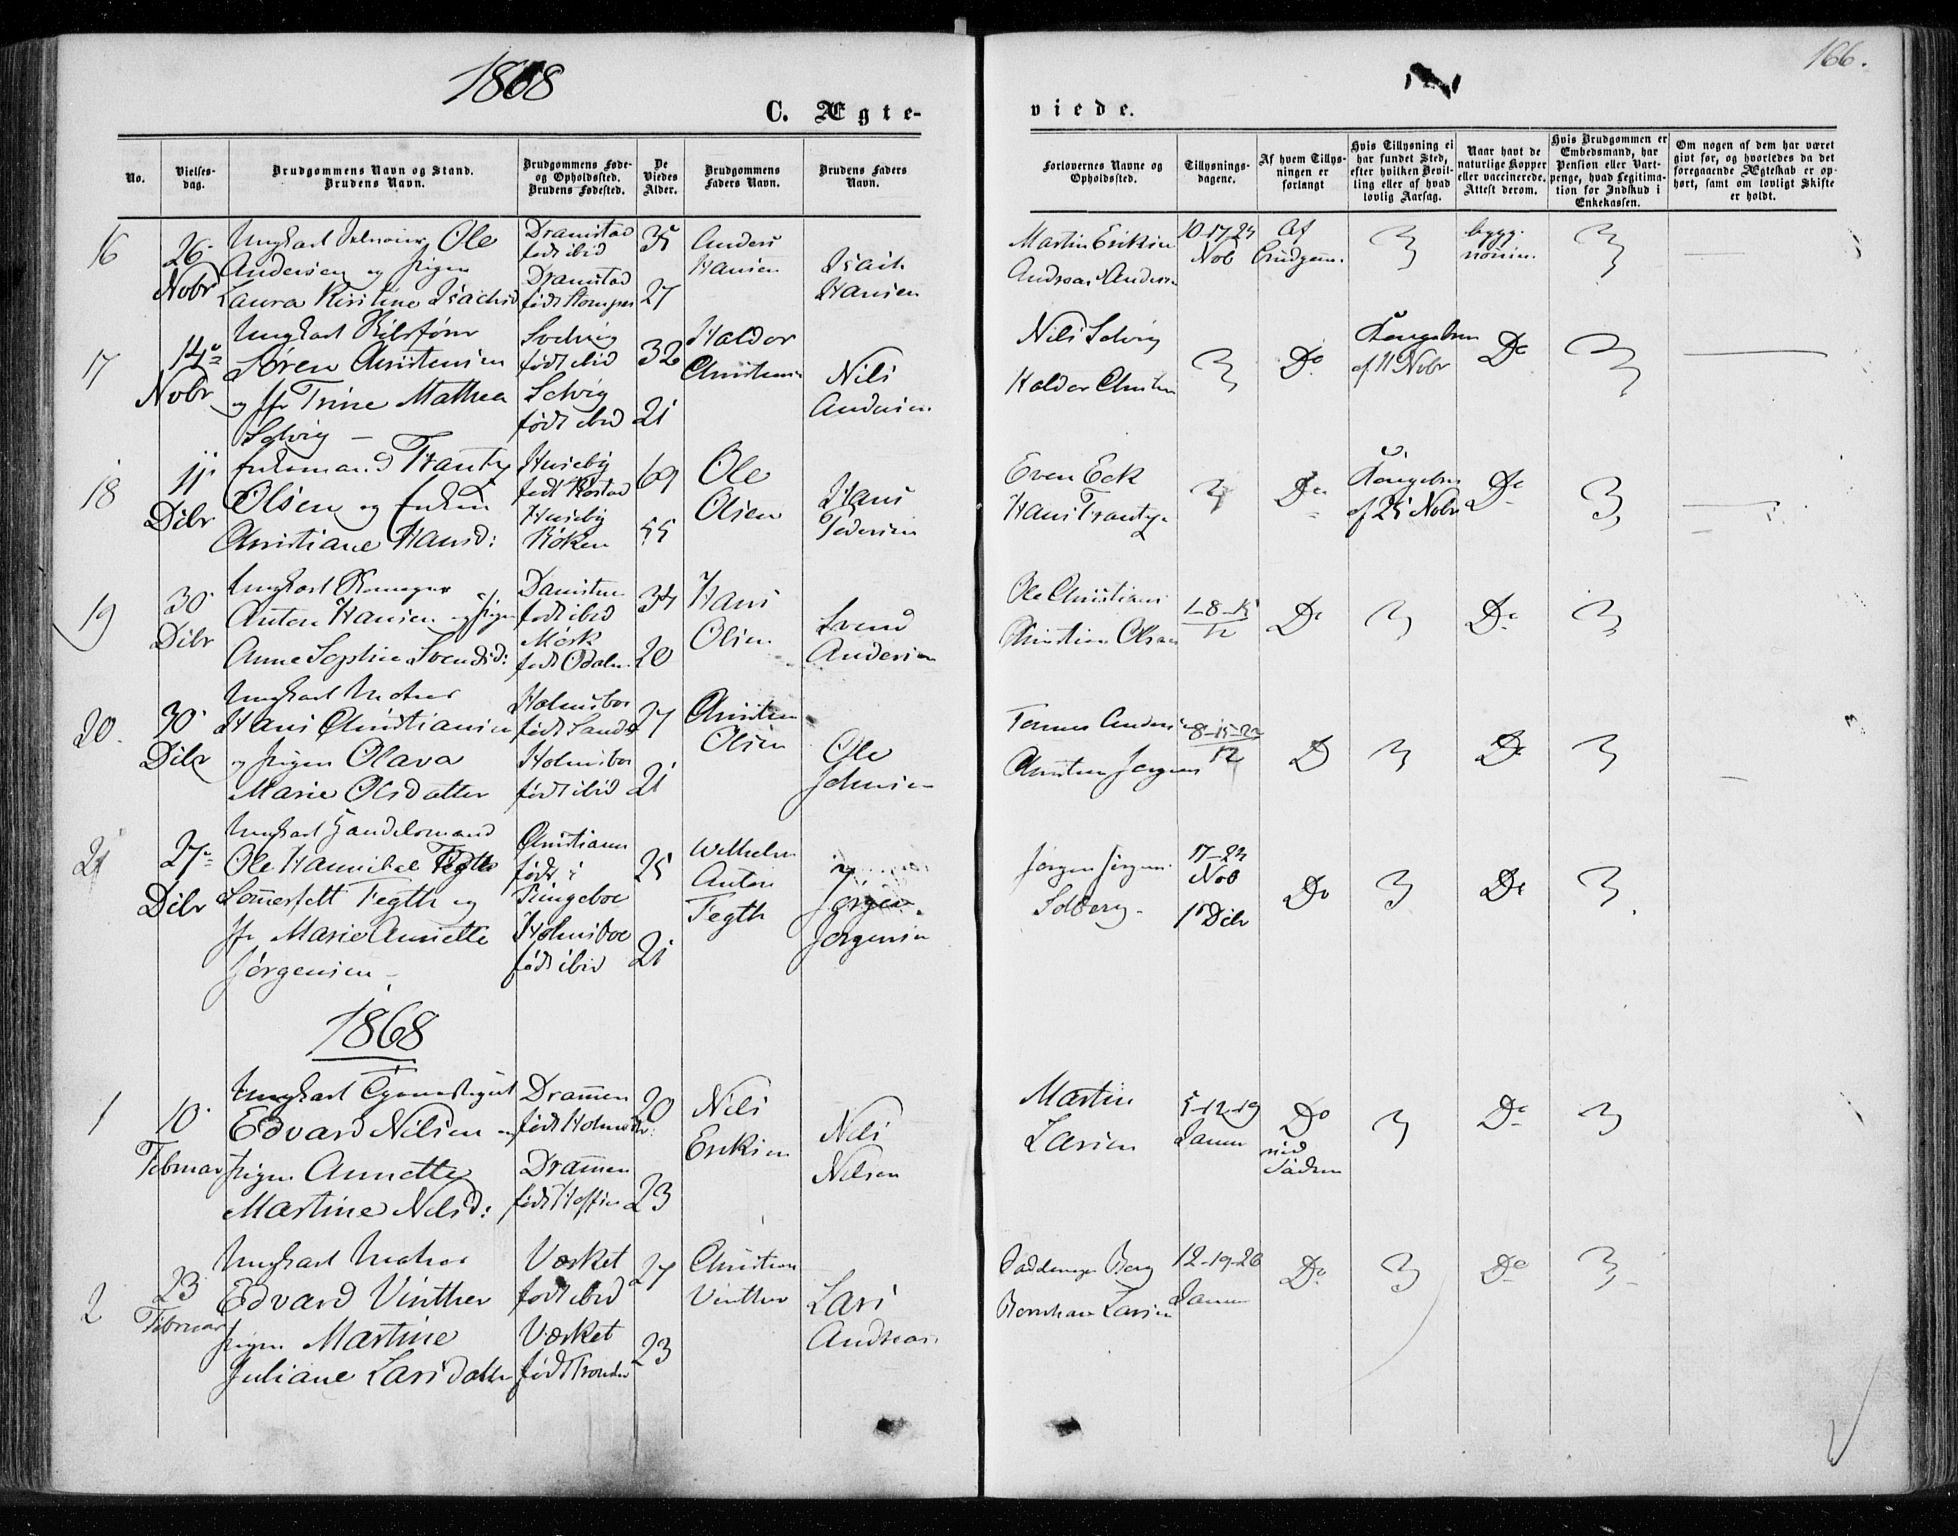 1868
166.
C. Ægte-
viede.
No.
Vielses-
dag.
Brudgommens Navn og Stand.
Brudens Navn.
Brudgommens Føde-
og Opholdssted.
Brudens Fødested.
De
Viedes
Alder.
Brudgommens
Faders Navn.
Brudens Faders
Navn.
Forlovernes Navne og
Opholdssted.
Tillysnings-
dagene.
Af hvem Tillys-
ningen er
forlangt
Hvis Tillysning ei
har fundet Sted,
efter hvilken Bevil-
ling eller af hvad
lovlig Aarsag.
Naar havt de
naturlige Kopper
eller vaccinerede.
Attest derom.
Hvis Brudgommen er
Embedsmand, har
Pension eller Vart-
penge, hvad Legitima-
tion for Indskud i
Enkekassen.
Om nogen af dem har været
gift før, og hvorledes da det
foregaaende Ægteskab er op-
hørt, samt om lovligt Skifte
er holdt.
16
26
Nobr
Ungkarl Ole
Andersen og Pigen
Laura Kirstine Isachsd
Dramstad
født ibid
Dramstad
35
27
Anders
Hansen
Isach
Hansen
Martin Eriksen
10-17-24
Nob
Af
Brudgom.
17
14
Nobr
Ungkarl
Søren Christensen
og Jfr Trine Mathea
Solvig —
Solvig
født ibid
Selvig
født ibid
32
21
Haldor
Christensen
Nils
Andersen
Nils Selvig
Haldor Christen
Do
Kongebrev
af 11 Nobr
Do
18
11
Dibr
Enkemand Frantz
Olsen og Enken
Christiane Hansd:
Huseby
Huseby
Røken
69
55
Ole
Olsen
Hans
Pedersen
Even Eck
Hans Frantz
Do
Kongebrev
af 25 Nobr
Do
19
30
Dibr
Ungkarl
Anton Hansen og Pigen
Anne Sophie Svendsd:
født ibid
Mørk
født Odaln
34
20
Hans
Olsen
Svend
Andersen
Ole Christians
Christian Olsen
1-8-15
12
Do
Do
20.
30
Dibr
Ungkarl Matros
Hans Christiansen
og Pigen Olava
Marie Olsdatter
Holmsboe
født Sande
Holmsboe
født ibid
27
21
Christian
Olsen
Ole
Johnsen
8-15-22
12
D
Do
21
27
Dibr
Ungkarl Handelsmand
Ole Hannibal Fegth
Sommerfelt Fegth og
Jfr Marie Annette
Jørgensen
Christiania
født i
Ringeboe
Holmsboe
født ibid
25
21
Wilhelm
Anton
Fegth
Jørgen
Jørgensen
Jørgen Jørgens.
Solberg
17-24
Nob
1 Dibr
Do
Do
1868
1
10
Februar
Ungkarl
Edvard Nilsen og
Pigen Annette
Martine Nilsd:
Drammen
født Holmsb:
Drammen
20
23
Nils
Eriksen
Nils
Nilsen
Martin
Larsen
5-12-19
Januar
Do
Do
2
23
Februar
Ungkarl Matros
Edvard Vinther
Pigen Martine
Juliane Larsdatter
Værket
født ibid
Værket
27
23
Christian
Vinther
Lars
Andreas
Bernhard Larsen
12-19-26
Januar
Do
Do